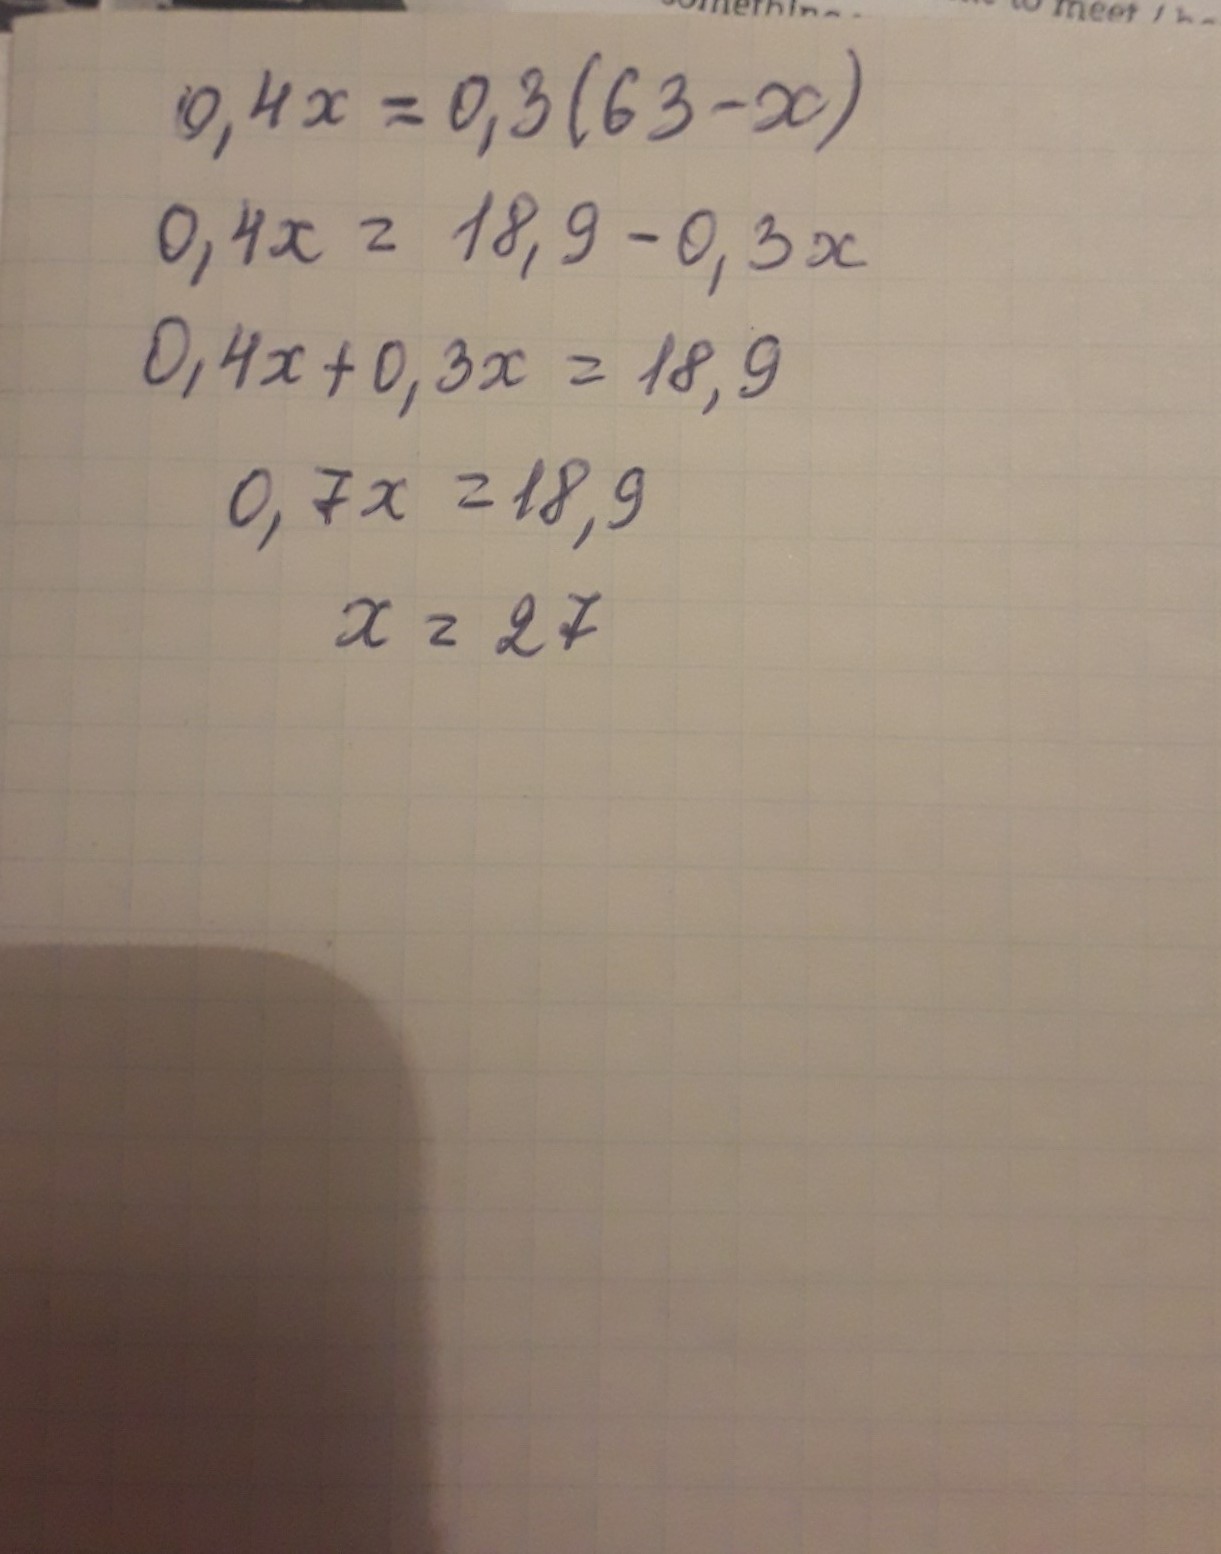 to meet
0,4x = 0,3(63-x)
0,4x = 18,9 - 0,3x
0,4x + 0,3x = 18,9
0,7x = 18,9
x = 27